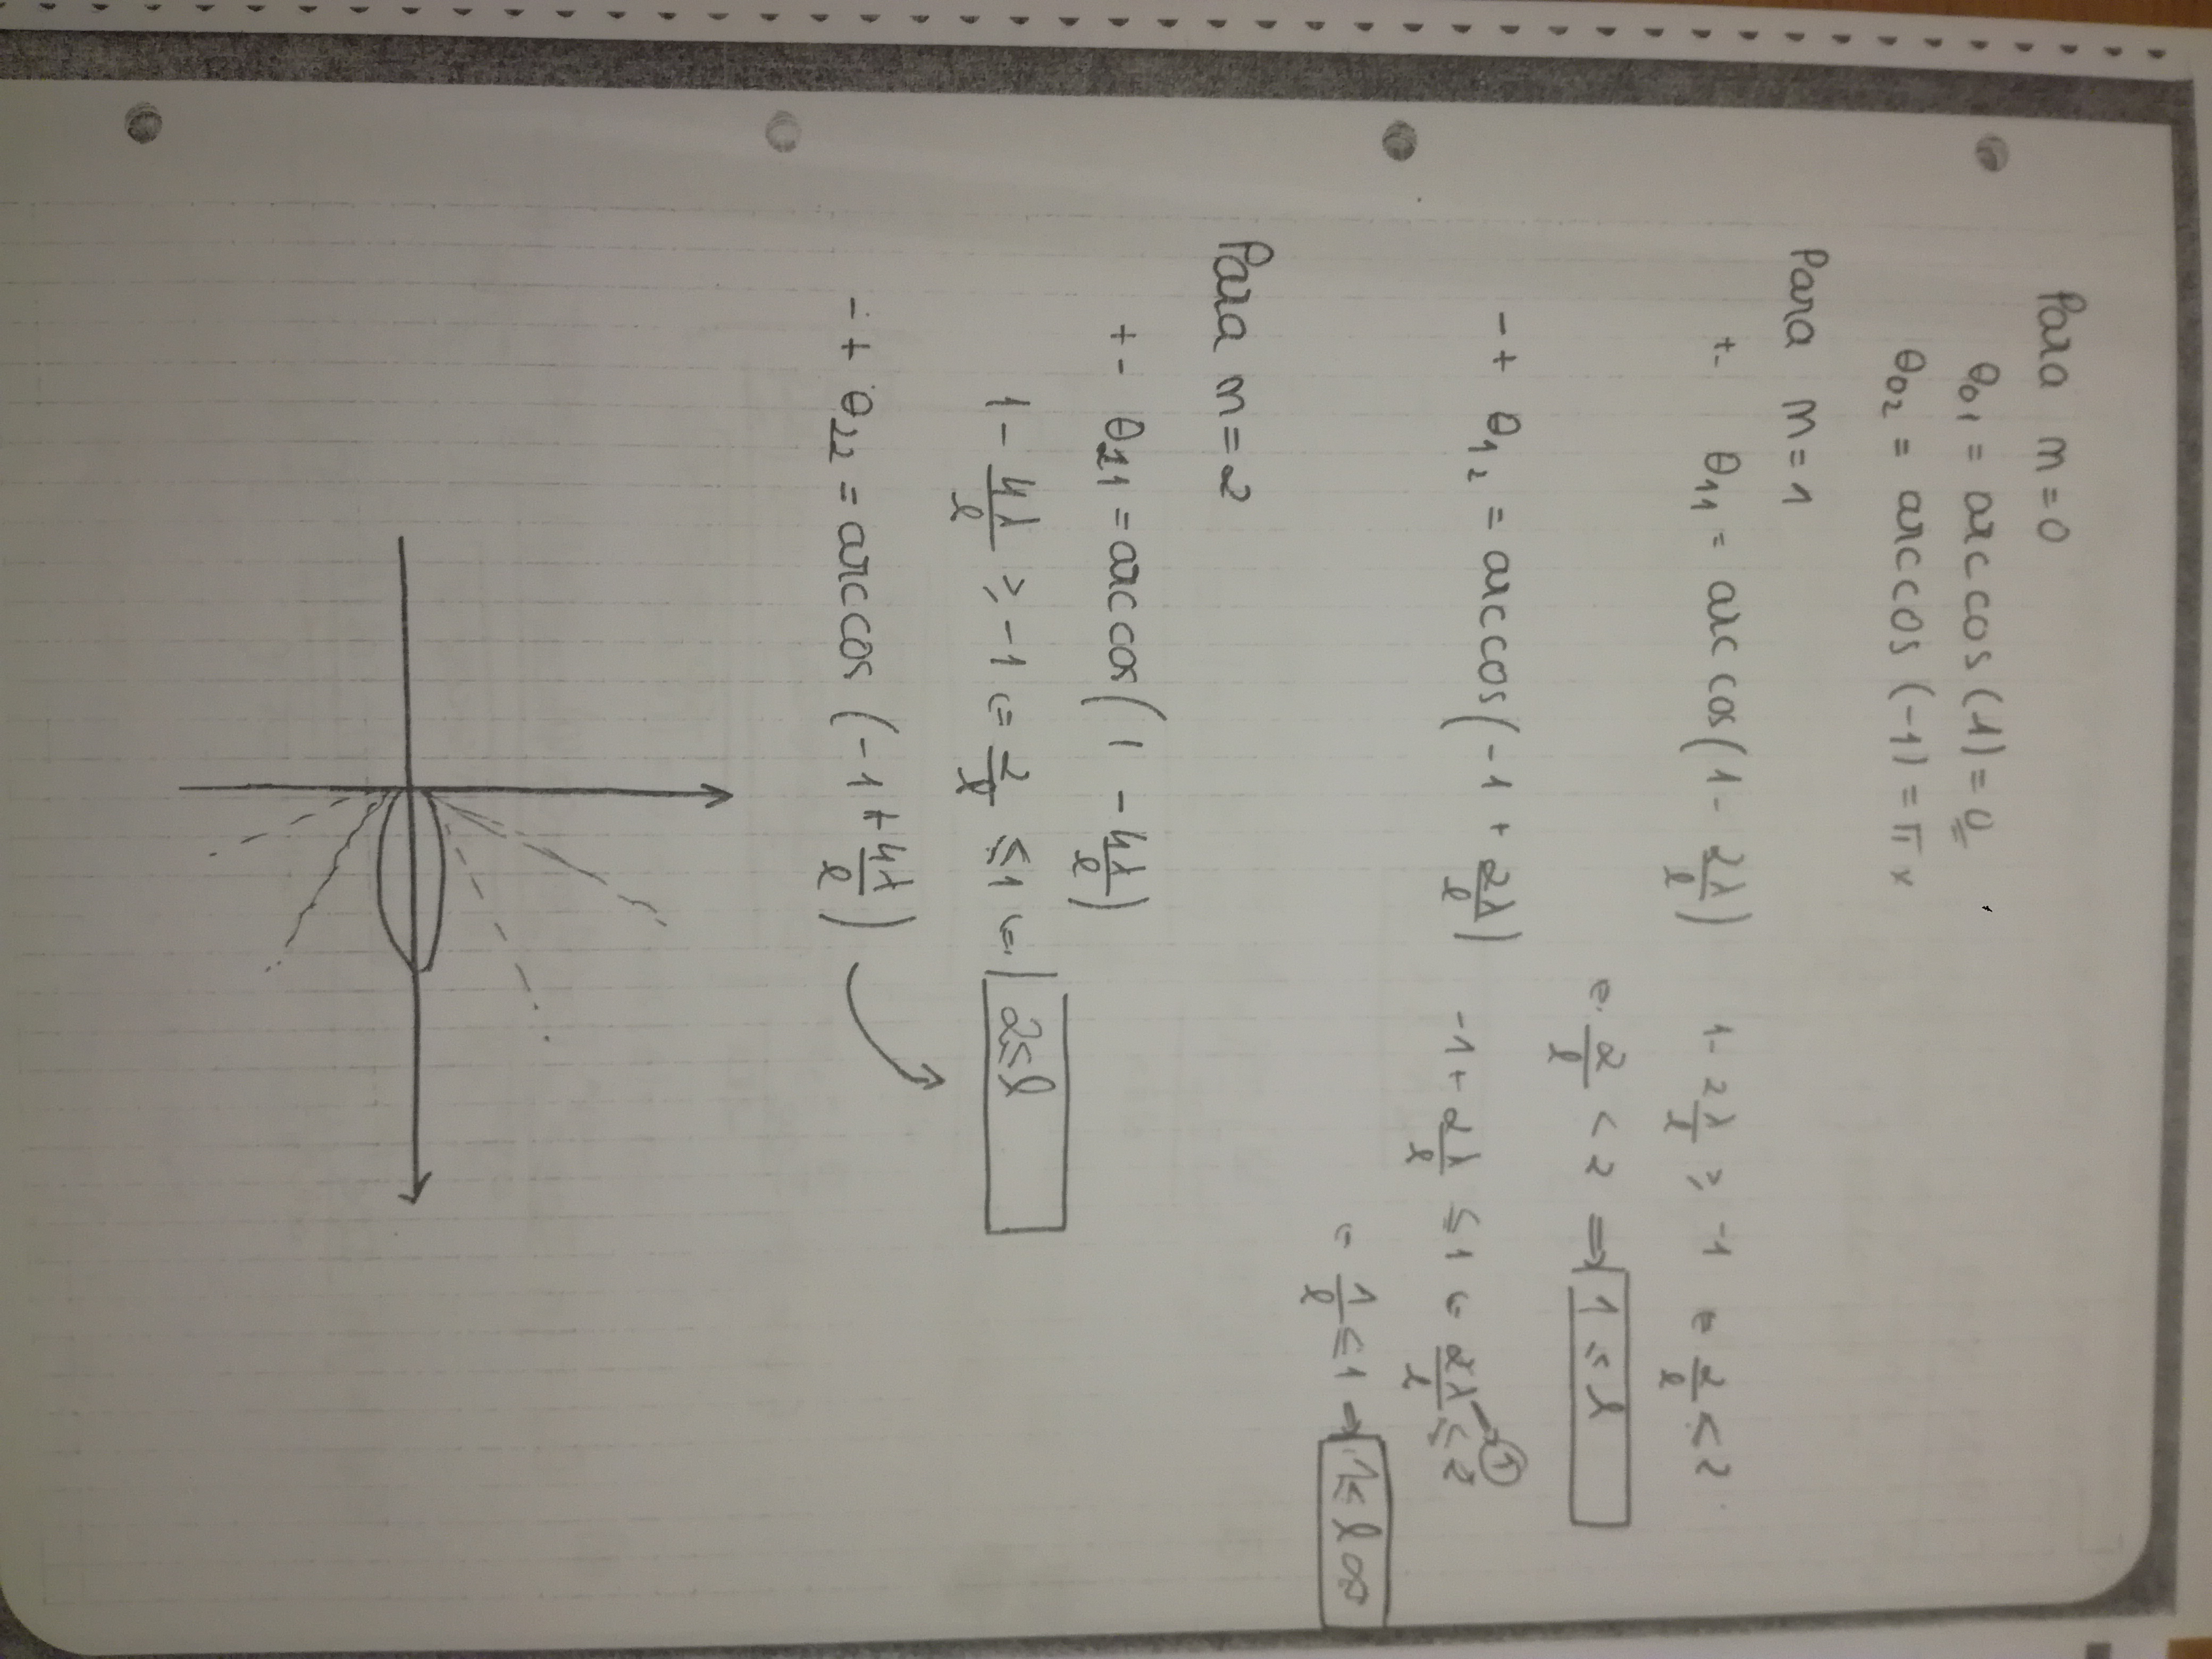 Para m=0
θ01 = arccos(1) = 0
θ02 = arccos(-1) = π x
Para m=1
+- θ11 = arccos(1 - 2λ/l) 1 - 2λ/l ≥ -1 = 2/l ≤ 2
= 2/l < 2 ⇒ 1 ≤ l
-+ θ12 = arccos(-1 + 2λ/l) -1 + 2λ/l ≤ 1 = 2λ/l ≤ 2 → 1
= 1/l ≤ 1 → 1 ≤ l ∞
Para m=2
+- θ21 = arccos(1 - 4λ/l)
1 - 4λ/l ≥ -1 = 2/l ≤ 1 = 2 ≤ l
-+ θ22 = arccos(-1 + 4λ/l)